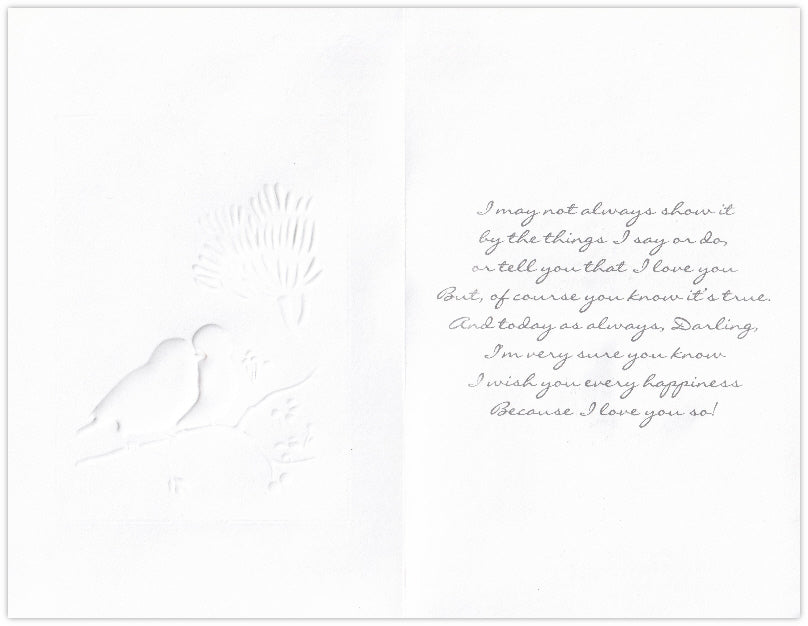 I may not always show it
by the things I say or do,
or tell you that I love you
But, of course you know it's true.
And today as always, Darling,
I'm very sure you know
I wish you every happiness
Because I love you so!